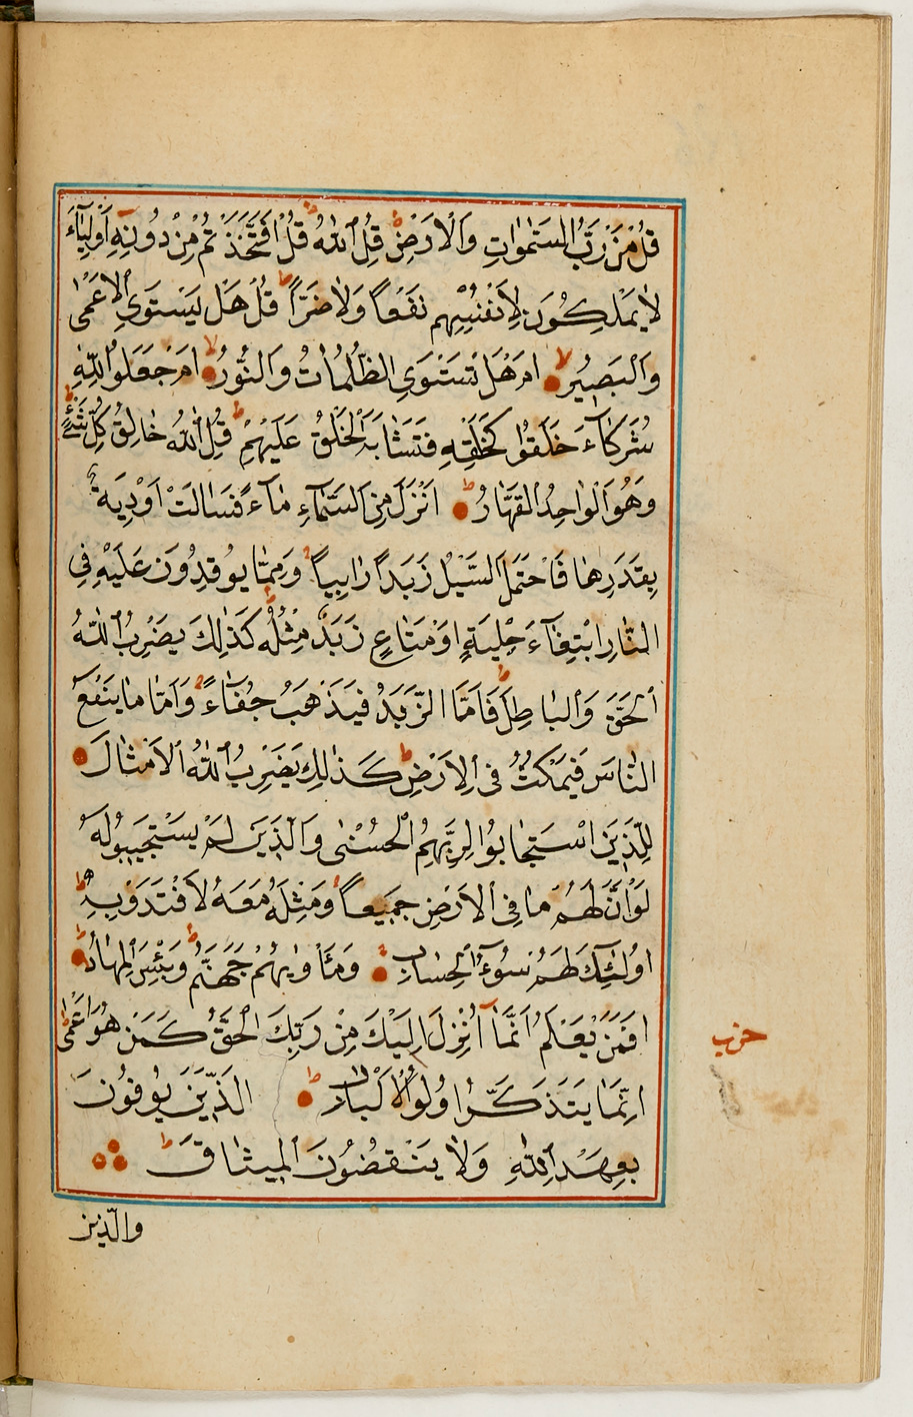 قُلْ مَنْ رَبُّ السَّمٰوَاتِ وَالْاَرْضِ قُلِ اللّٰهُ قُلْ اَفَاتَّخَذْتُمْ مِنْ دُونِهِ اَوْلِيَٓاءَ
لَا يَمْلِكُونَ لِاَنْفُسِهِمْ نَفْعًا وَلَا ضَرًّا قُلْ هَلْ يَسْتَوِي الْاَعْمٰى
وَالْبَصِيرُ اَمْ هَلْ تَسْتَوِي الظُّلُمَاتُ وَالنُّورُ اَمْ جَعَلُوا لِلّٰهِ
شُرَكَٓاءَ خَلَقُوا كَخَلْقِهِ فَتَشَابَهَ الْخَلْقُ عَلَيْهِمْ قُلِ اللّٰهُ خَالِقُ كُلِّ شَيْءٍ
وَهُوَ الْوَاحِدُ الْقَهَّارُ اَنْزَلَ مِنَ السَّمَٓاءِ مَٓاءً فَسَالَتْ اَوْدِيَةٌ
بِقَدَرِهَا فَاحْتَمَلَ السَّيْلُ زَبَدًا رَابِيًا وَمِمَّا يُوقِدُونَ عَلَيْهِ فِي
النَّارِ ابْتِغَٓاءَ حِلْيَةٍ اَوْ مَتَاعٍ زَبَدٌ مِثْلُهُ كَذٰلِكَ يَضْرِبُ اللّٰهُ
الْحَقَّ وَالْبَاطِلَ فَاَمَّا الزَّبَدُ فَيَذْهَبُ جُفَٓاءً وَاَمَّا مَا يَنْفَعُ
النَّاسَ فَيَمْكُثُ فِي الْاَرْضِ كَذٰلِكَ يَضْرِبُ اللّٰهُ الْاَمْثَالَ
لِلَّذِينَ اسْتَجَابُوا لِرَبِّهِمُ الْحُسْنٰى وَالَّذِينَ لَمْ يَسْتَجِيبُوا لَهُ
لَوْ اَنَّ لَهُمْ مَا فِي الْاَرْضِ جَمِيعًا وَمِثْلَهُ مَعَهُ لَافْتَدَوْا بِهِ
اُولٰٓئِكَ لَهُمْ سُٓوءُ الْحِسَابِ وَمَأْوٰيهُمْ جَهَنَّمُ وَبِئْسَ الْمِهَادُ
اَفَمَنْ يَعْلَمُ اَنَّمَٓا اُنْزِلَ اِلَيْكَ مِنْ رَبِّكَ الْحَقُّ كَمَنْ هُوَ اَعْمٰى
اِنَّمَا يَتَذَكَّرُ اُولُوا الْاَلْبَابِ الَّذِينَ يُوفُونَ
بِعَهْدِ اللّٰهِ وَلَا يَنْقُضُونَ الْمِيثَاقَ
حزب
والّذين